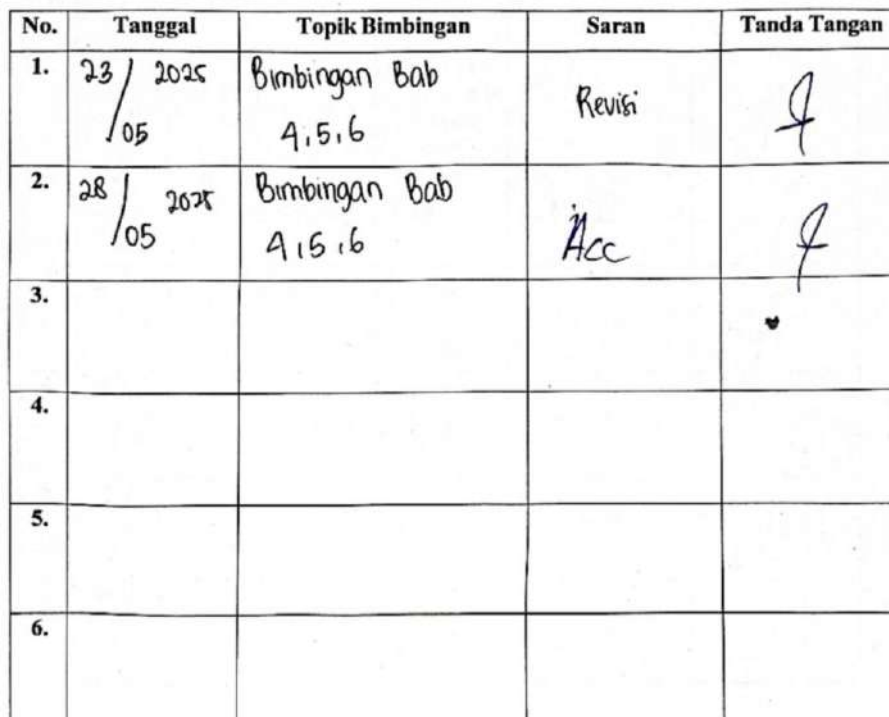 No. Tanggal Topik Bimbingan Saran Tanda Tangan
1. 23/05 2025 Bimbingan Bab 4,5,6 Revisi
2. 28/05 2025 Bimbingan Bab 4,5,6 Acc
3.
4.
5.
6.